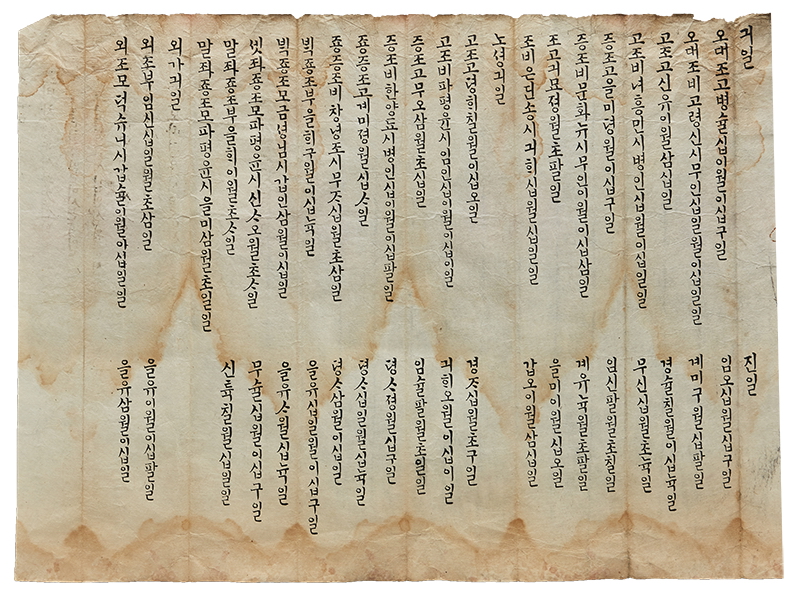 긔일 진일
오대조고병술십이월이십구일 임오십월십구일
오대조비고령신시무인십일월이십일일 계미구월십팔일
고조고신유이월삼십일 경술칠월이십뉵일
고조비녀흥민시병인십월이십일일 무신십월초뉵일
증조고을미졍월이십구일 임신팔월초칠일
증조비문화뉴시무인이월이십삼일 계유뉵월초팔일
조고긔묘졍월초팔일 을미이월십오일
조비은딘송시긔희십월십일일 갑오이월삼십일
노셩긔일
고조고졍희칠월이십오일 경ᄌ십월초구일
고조비파평윤시임인십월이십이일 긔희오월이십이일
증조고무오삼월초십일 임술팔월초일일
증조비한양됴시병인십이월이십팔일 뎡ᄉ졍월십구일
죵증조고계미졍월십ᄉ일 뎡ᄉ십일월십뉵일
죵증조비창녕조시무ᄌ십월초삼일 뎡ᄉ삼월이십일
ᄇᆡᆨ죵조부을희구월이십뉵일 을유십일월이십구일
ᄇᆡᆨ죵조모금녕님시갑인삼월이십일 을유ᄉ월십뉵일
셋ᄌᆡ죵조모파평윤시신ᄉ오월초ᄉ일 무술십월이십구일
말ᄌᆡ죵조부을희이월초ᄉ일 신튝칠월십일일
말ᄌᆡ죵조모파평윤시을미삼월초일일
외가긔일
외조부임신십일월초삼일 을유이월이십팔일
외조모덕슈니시갑슐이월이십일일 을유삼월이십일